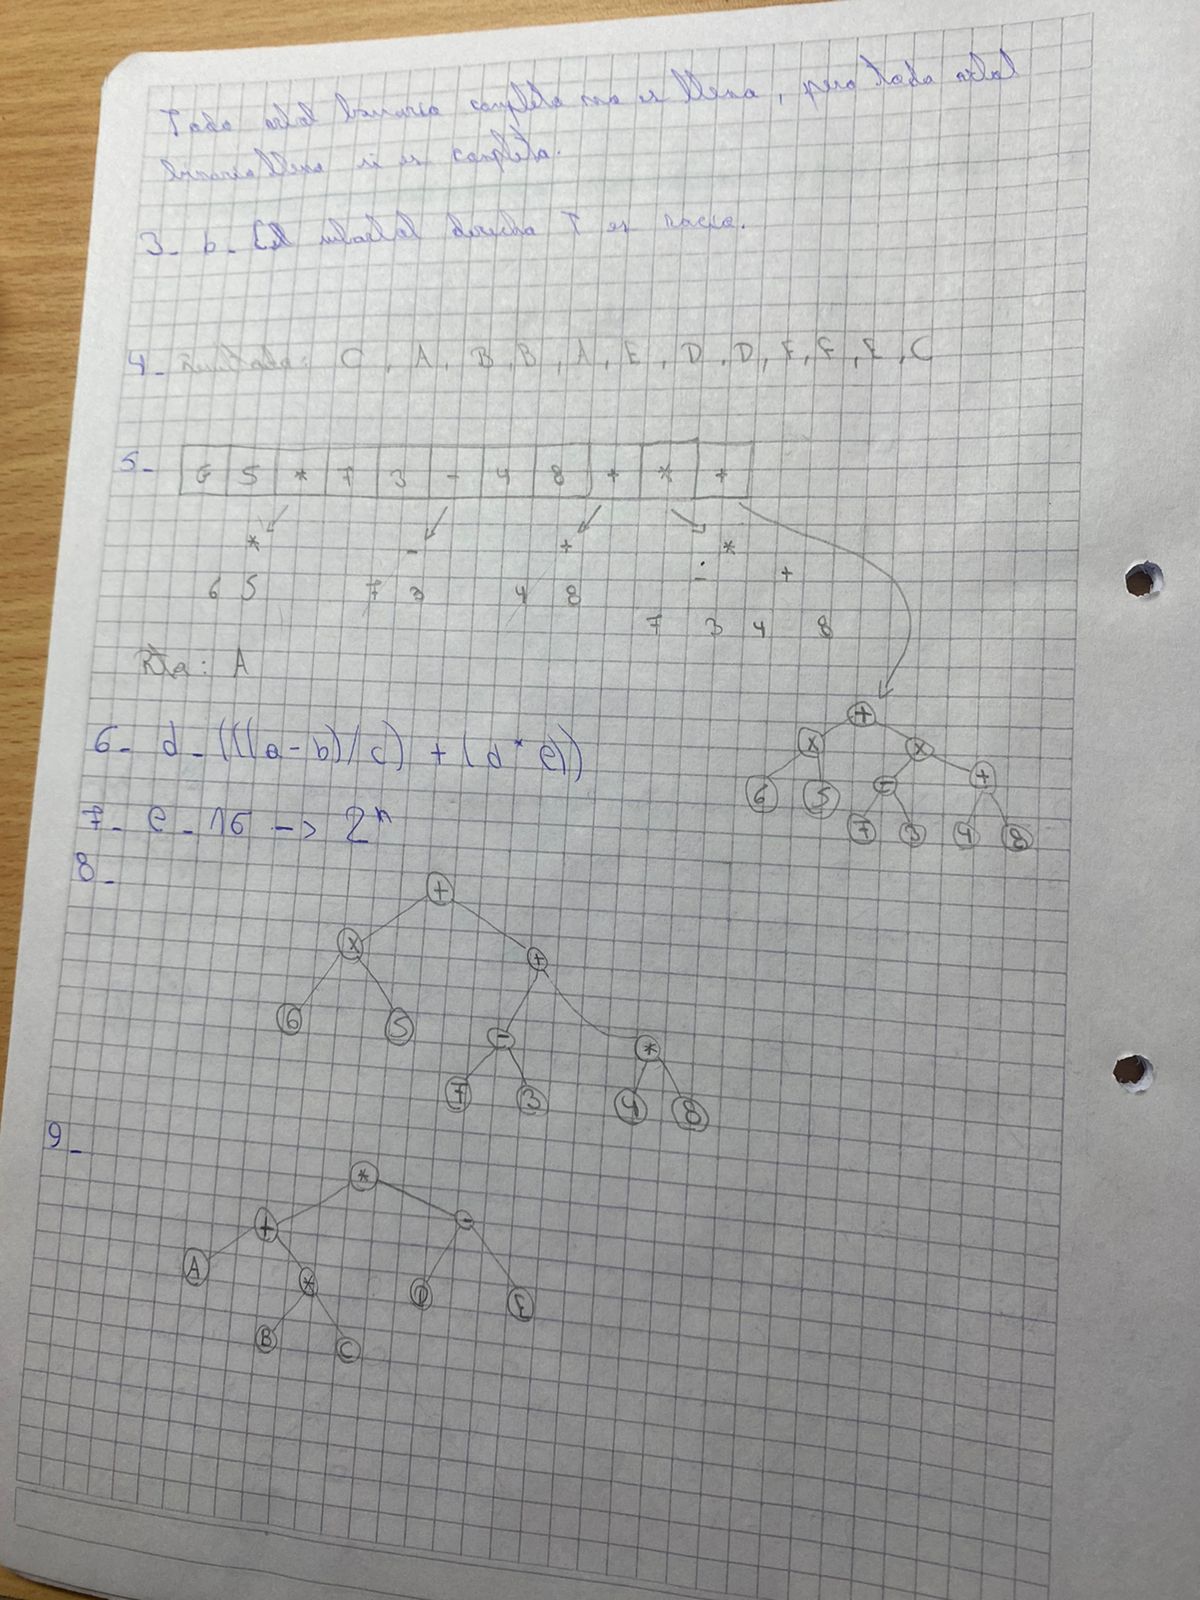 Todo arbol binario completo no es lleno, pero todo arbol
binario lleno si es completo.
3- b- El subarbol derecho T es vacio.
4- Resultado: C, A, B, B, A, E, D, D, F, F, E, C
5- 6 5 * 7 3 - 4 8 + * +
* - + *
- +
6 5 7 3 4 8
7 3 4 8
Rta: A
+
x x
6 5 - +
7 3 4 8
6- d- (((a-b)/c) + (d*e))
7- e- 16 -> 2ⁿ
8-
+
x +
16 5 - *
7 3 4 8
9-
*
+ -
A * D E
B C